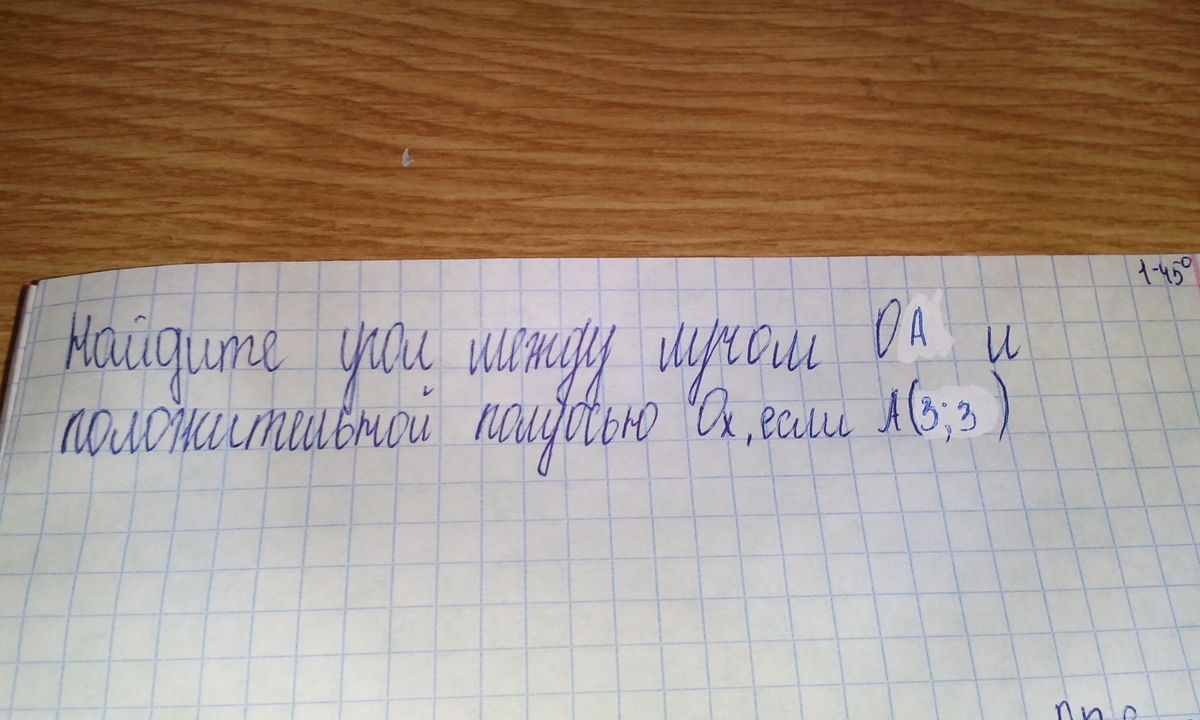 1-45°
Найдите угол между лучом OA и
положительной полуосью Ox, если A(3;3)